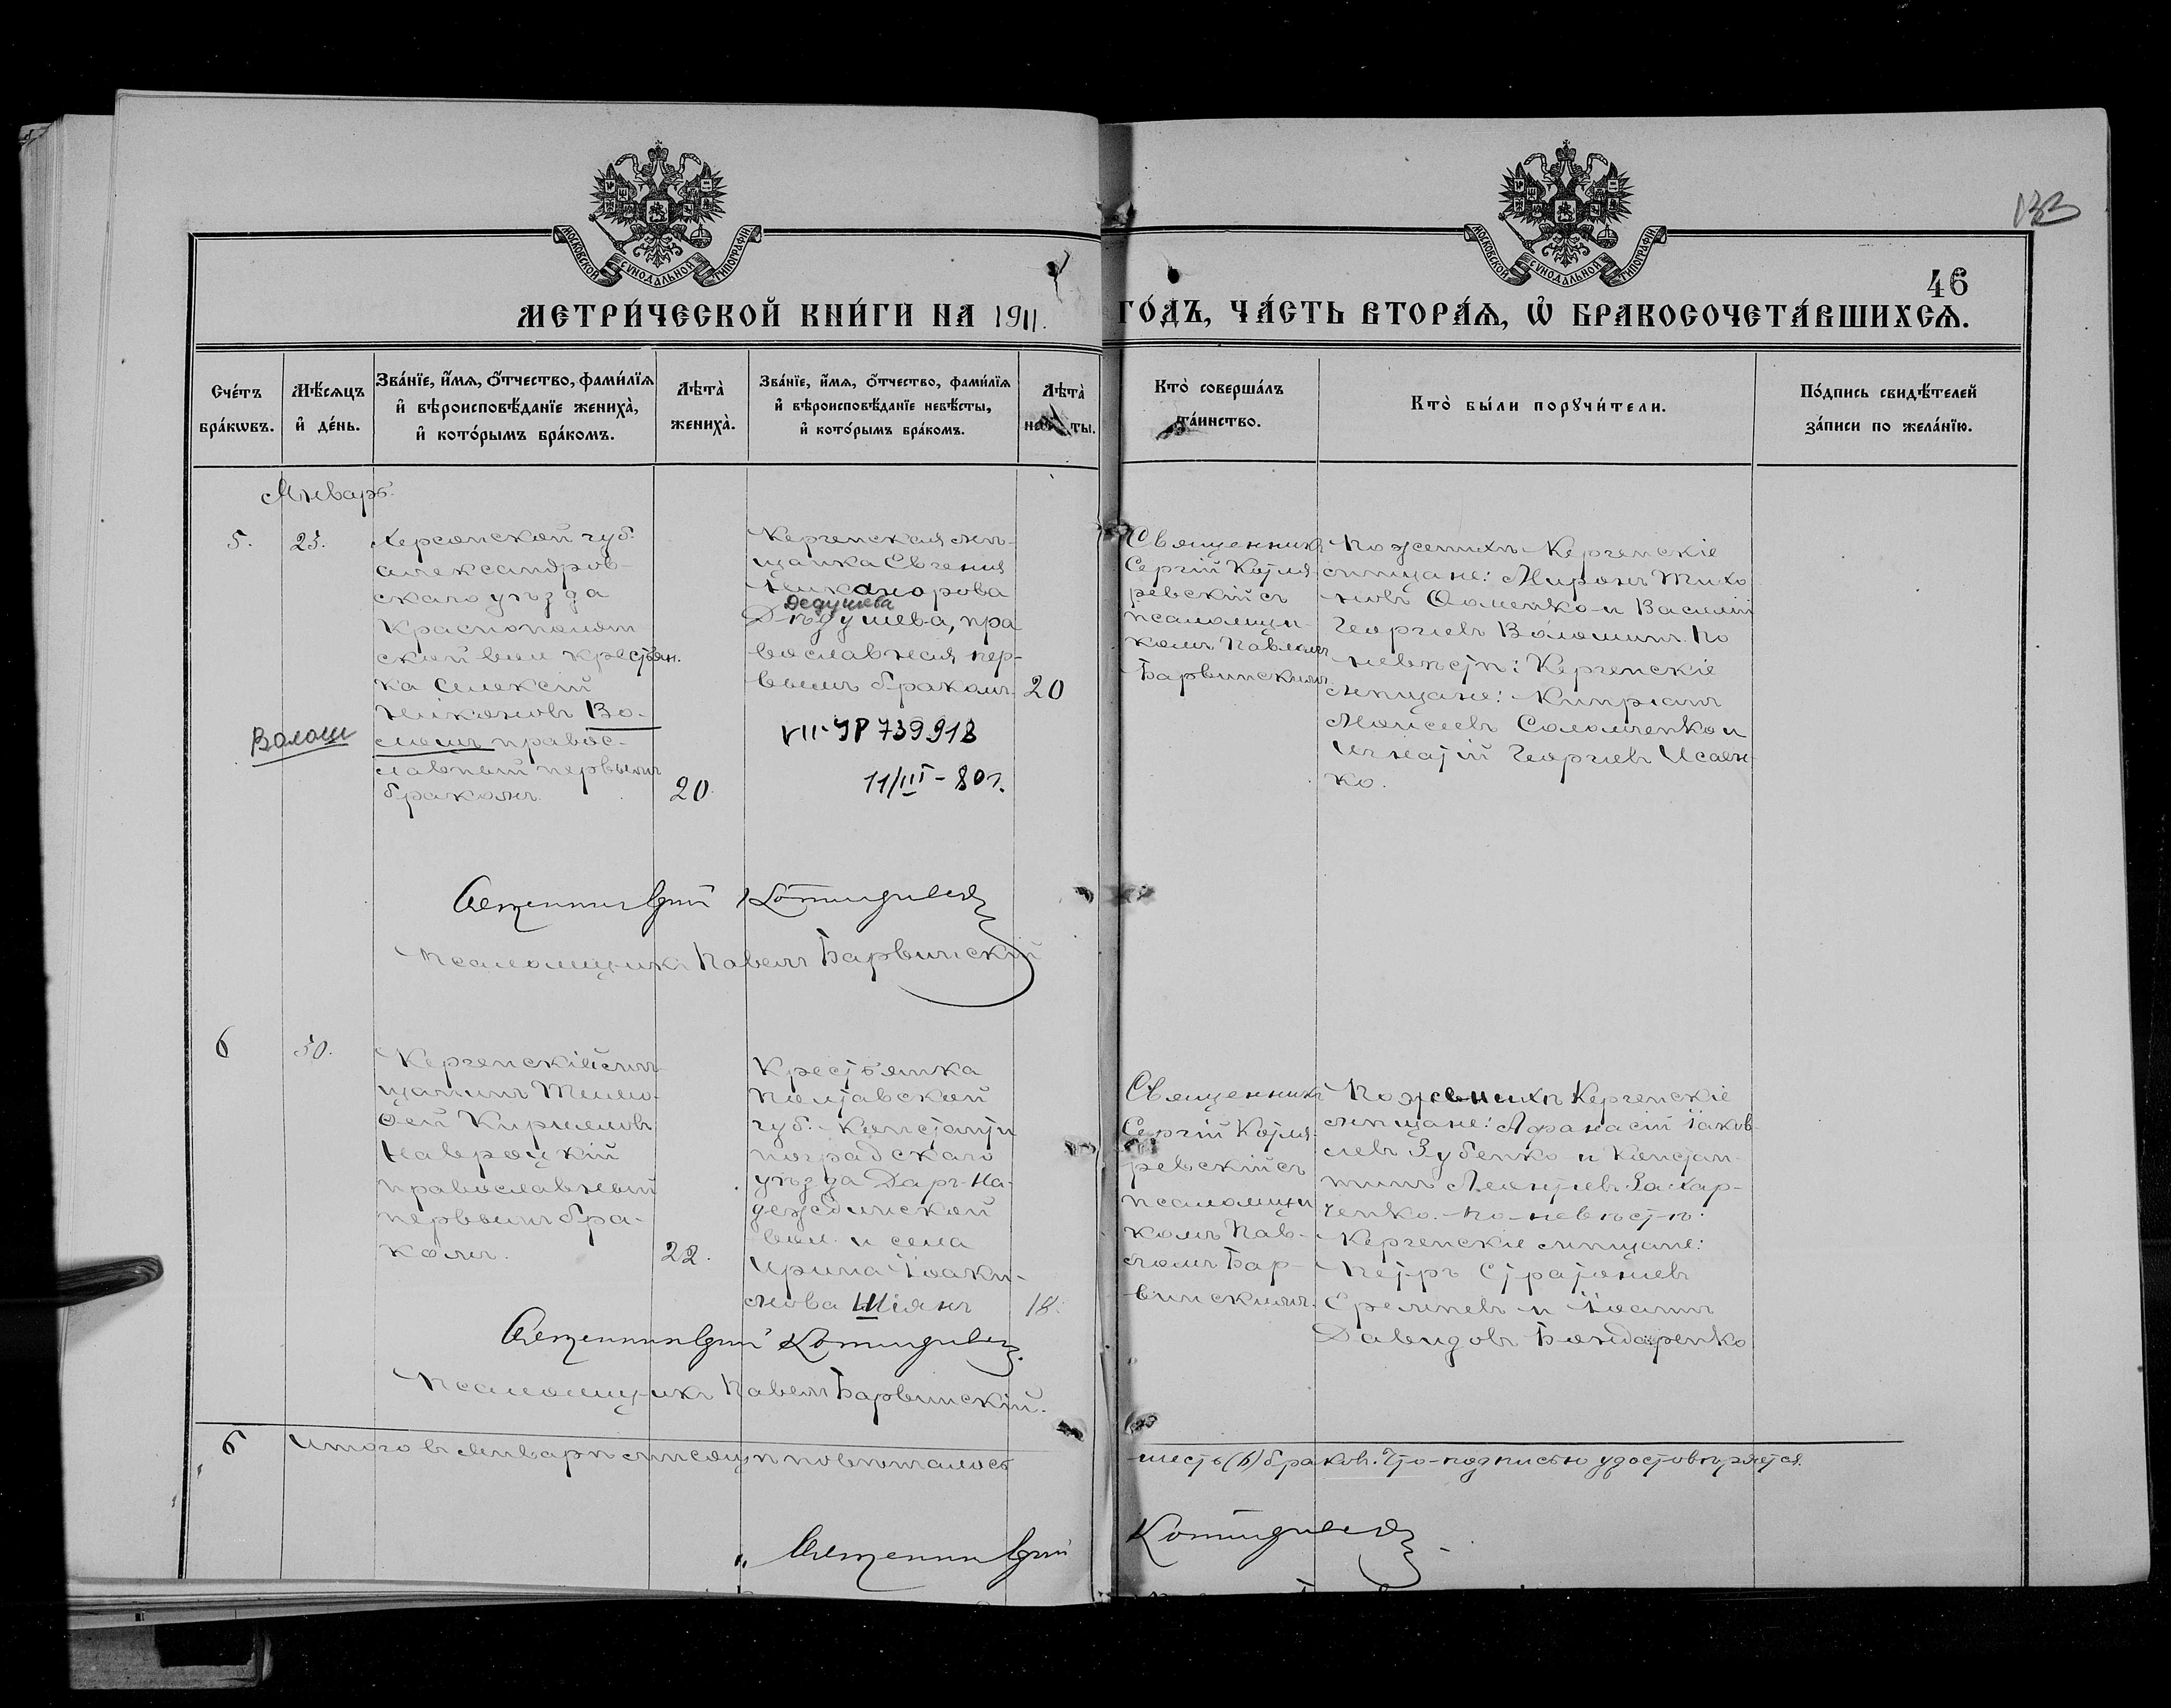 МОСКОВСКОЙ СѴНОДАЛЬНОЙ ТИПОГРАФІИ
МОСКОВСКОЙ СѴНОДАЛЬНОЙ ТИПОГРАФІИ
133
46
МЕТРИ́ЧЕСКОЙ КНИ́ГИ НА 1911.
ГО́ДЪ, ЧА́СТЬ ВТОРА́Ѧ, Ѡ҆ БРАКОСОЧЕТА́ВШИХСѦ.
Сче́тъ бра́кѡвъ.
Мѣ́сѧцъ и҆ де́нь.
Зва́нїе, и҆́мѧ, о҆́тчество, фами́лїѧ
и҆ вѣроисповѣ́данїе жениха̀,
и҆ кото́рымъ бра́комъ.
Лѣта̀ жениха̀.
Зва́нїе, и҆́мѧ, о҆́тчество, фами́лїѧ
и҆ вѣроисповѣ́данїе невѣ́сты,
и҆ кото́рымъ бра́комъ.
Лѣта̀
Кто̀ соверша́лъ
та́инство.
Кто̀ бы́ли порꙋчи́тели.
По́дпись свидѣ́телей
за́писи по жела́нїю.
Январь.
5.
Херсонской губ.
Александров-
скаго уѣзда
ской вол крестьян.
ка Алексій
Никоновъ Во-
лошъ правос-
лавный первымъ
бракомъ.
Волош
20.
Керченская мѣ-
щанка Евгенія
Никанорова
Дедушева
Дѣдушева, пра
вославная пер-
вымъ бракомъ.
20
VII-ЯР 739918
11/III-80г.
Священникъ
Сергій Котля-
ревскій съ
псаломщи-
комъ Павломъ
Барвинскимъ.
По женихѣ Керченскіе
мѣщане: Миронъ Тихо
новъ Фоменко и Василій
Георгіевъ Волошинъ. По
невѣстѣ: Керченскіе
мѣщане: Кипріанъ
Моисеевъ Соломченко и
Игнатій Георгіевъ Исаен-
ко.
Псаломщикъ Павелъ Барвинскій
6
30.
Керченскій мѣ-
щанинъ Тимо-
фей Кирилловъ
Навроцкій
православный
первымъ бра-
комъ.
22.
Крестьянка
Полтавской
губ. Константи
ноградскаго
уѣзда Дарг-На-
деждинской
вол. и села
Ирина Іоаки-
мова Шіянъ
18.
Священникъ
Сергій Котля-
ревскій съ
псаломщи
комъ Пав-
ломъ Бар-
винскимъ.
По женихѣ Керченскіе
мѣщане: Афанасій Іаков-
левъ Зубенко и Констан-
тинъ Леонтіевъ Захар-
ченко. По невѣстѣ:
Керченскіе мѣщане:
Петръ Стратоніевъ
Еремѣевъ и Іоаннъ
Давидовъ Бондаренко
Псаломщикъ Павелъ Барвинскій.
6 Итого въ Январѣ мѣсяцѣ повѣнчалось
шесть (6) браков. Что подписью удостовѣряется.